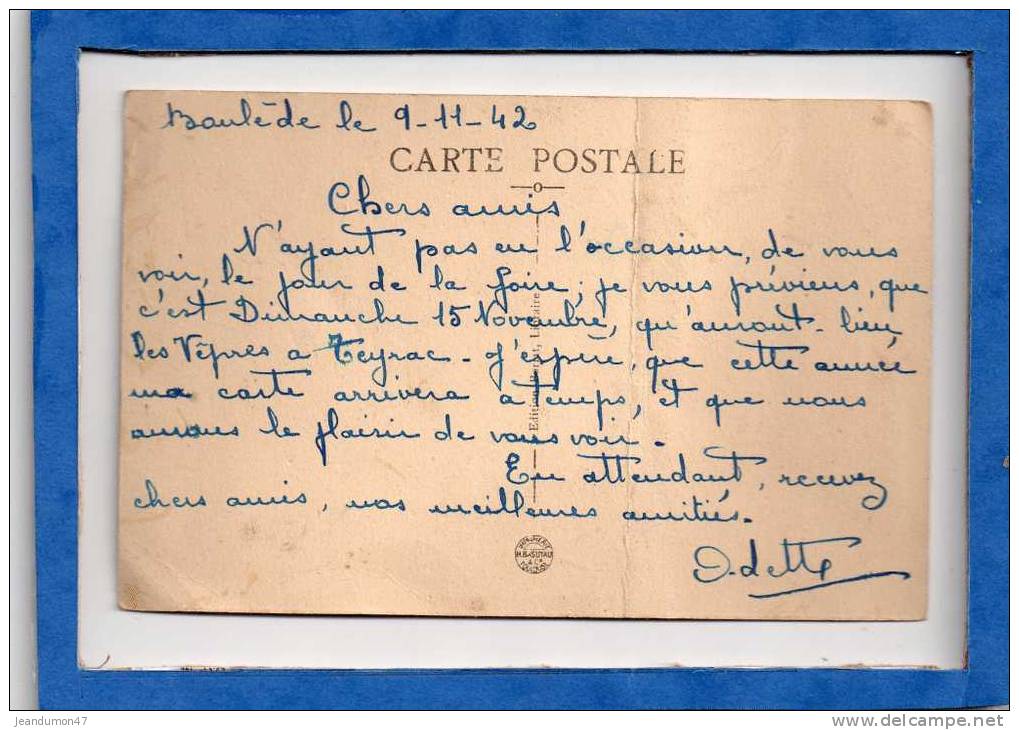 Baulède le 9-11-42
CARTE POSTALE
Chers amis,
N'ayant pas eu l'occasion, de vous
voir, le jour de la foire, je vous préviens, que
c'est Dimanche 15 Novembre, qu'auront-lieu
les Vêpres a Teyrac - J'espère, que cette année
ma carte arrivera a temps, et que nous
aurons le plaisir de vous voir -
En attendant, recevez
chers amis, nos meilleures amitiés -
Odette
Libraire
IMPRIMERIE
TOULOUSE
jeandumon47
www.delcampe.net